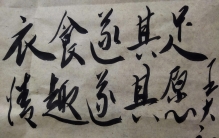 衣食遂其足
情趣遂其愿